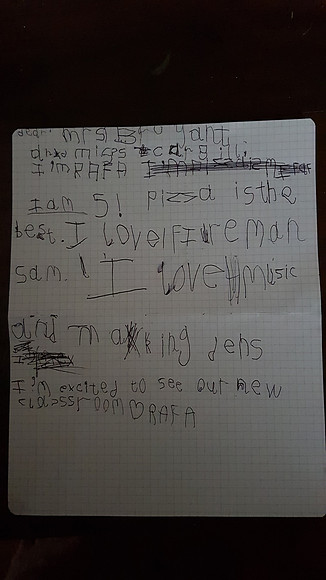 dear mrs Bryant
and miss cargill.
I'm RAFA
I am 5! pizza is the
best. I love Fireman
sam. I love music
and making dens
I'm excited to see our new
classroom ♡ RAFA